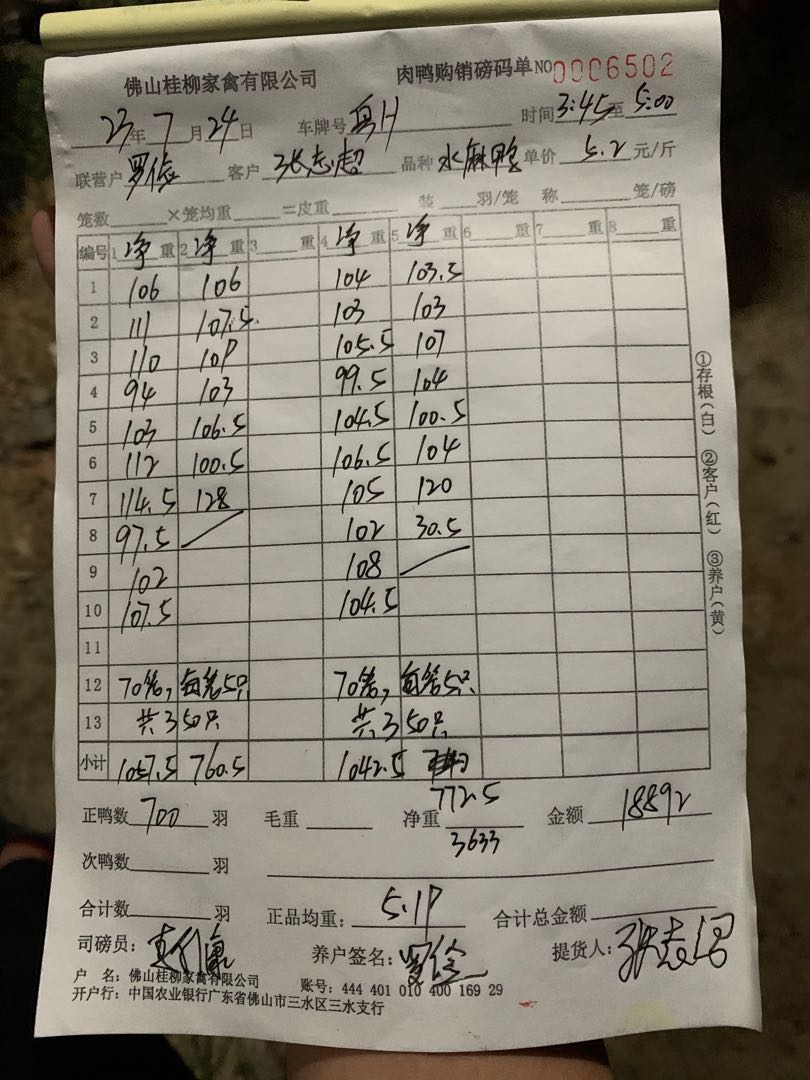 佛山桂柳家禽有限公司 肉鸭购销磅码单 NO 0006502
23年7月24日 车牌号 粤H 时间 3:45至5:00
联营户 罗俭 客户 张志超 品种 水麻鸭 单价 5.2 元/斤
笼数 ×笼均重 =皮重 装 羽/笼 称 笼/磅
编号 1 净重 2 净重 3 重 4 净重 5 净重 6 重 7 重 8 重
1 106 106 104 103.5
2 111 107.5 103 103
3 110 109 105.5 107
4 94 103 99.5 104
5 103 106.5 104.5 100.5
6 112 100.5 106.5 104
7 114.5 128 105 120
8 97.5 102 30.5
9 102 108
10 107.5 104.5
11
12 70笼,每笼5只 70笼,每笼5只
13 共350只 共350只
小计 1057.5 760.5 1042.5
772.5
正鸭数 700 羽 毛重 净重 3633 金额 18892
次鸭数 羽
合计数 羽 正品均重: 5.19 合计总金额
司磅员: 养户签名: 罗俭 提货人: 张志超
户 名: 佛山桂柳家禽有限公司 账号: 444 401 010 400 169 29
开户行: 中国农业银行广东省佛山市三水区三水支行
①存根(白) ②客户(红) ③养户(黄)